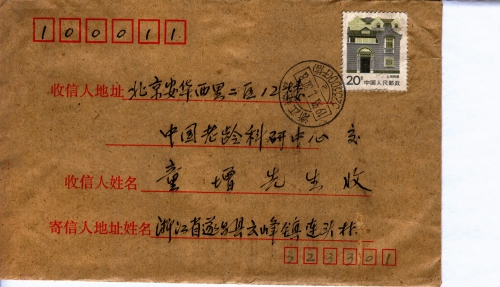 100011
20分 中国人民邮政
收信人地址 北京安华西里二区12楼
中国老龄科研中心 交
收信人姓名 童增先生收
寄信人地址姓名 浙江省遂昌县云峰镇连头村
323301